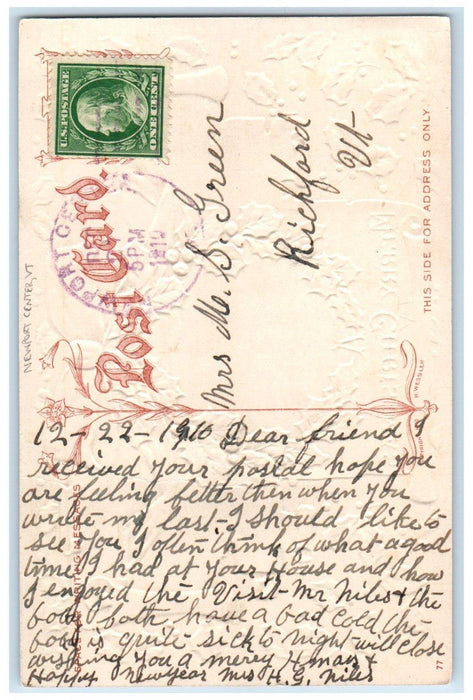 U.S. POSTAGE
ONE CENT
5 PM
1910
NEWPORT CENTER, VT
Post Card.
Mrs M. S. Green
Richford
Vt
THIS SIDE FOR ADDRESS ONLY
H. WESSLER
WRITING MESSAGES
77
12-22-1910 Dear friend I
received your postal hope you
are feeling better then when you
wrote my last- I should like to
see you I often think of what a good
time I had at your House and how
I enjoyed the Visit- Mr Niles & the
boys both have a bad cold the
boy is quite sick to night will close
wishing you a merey Xmass &
Happy newyear Mrs H.G. Niles